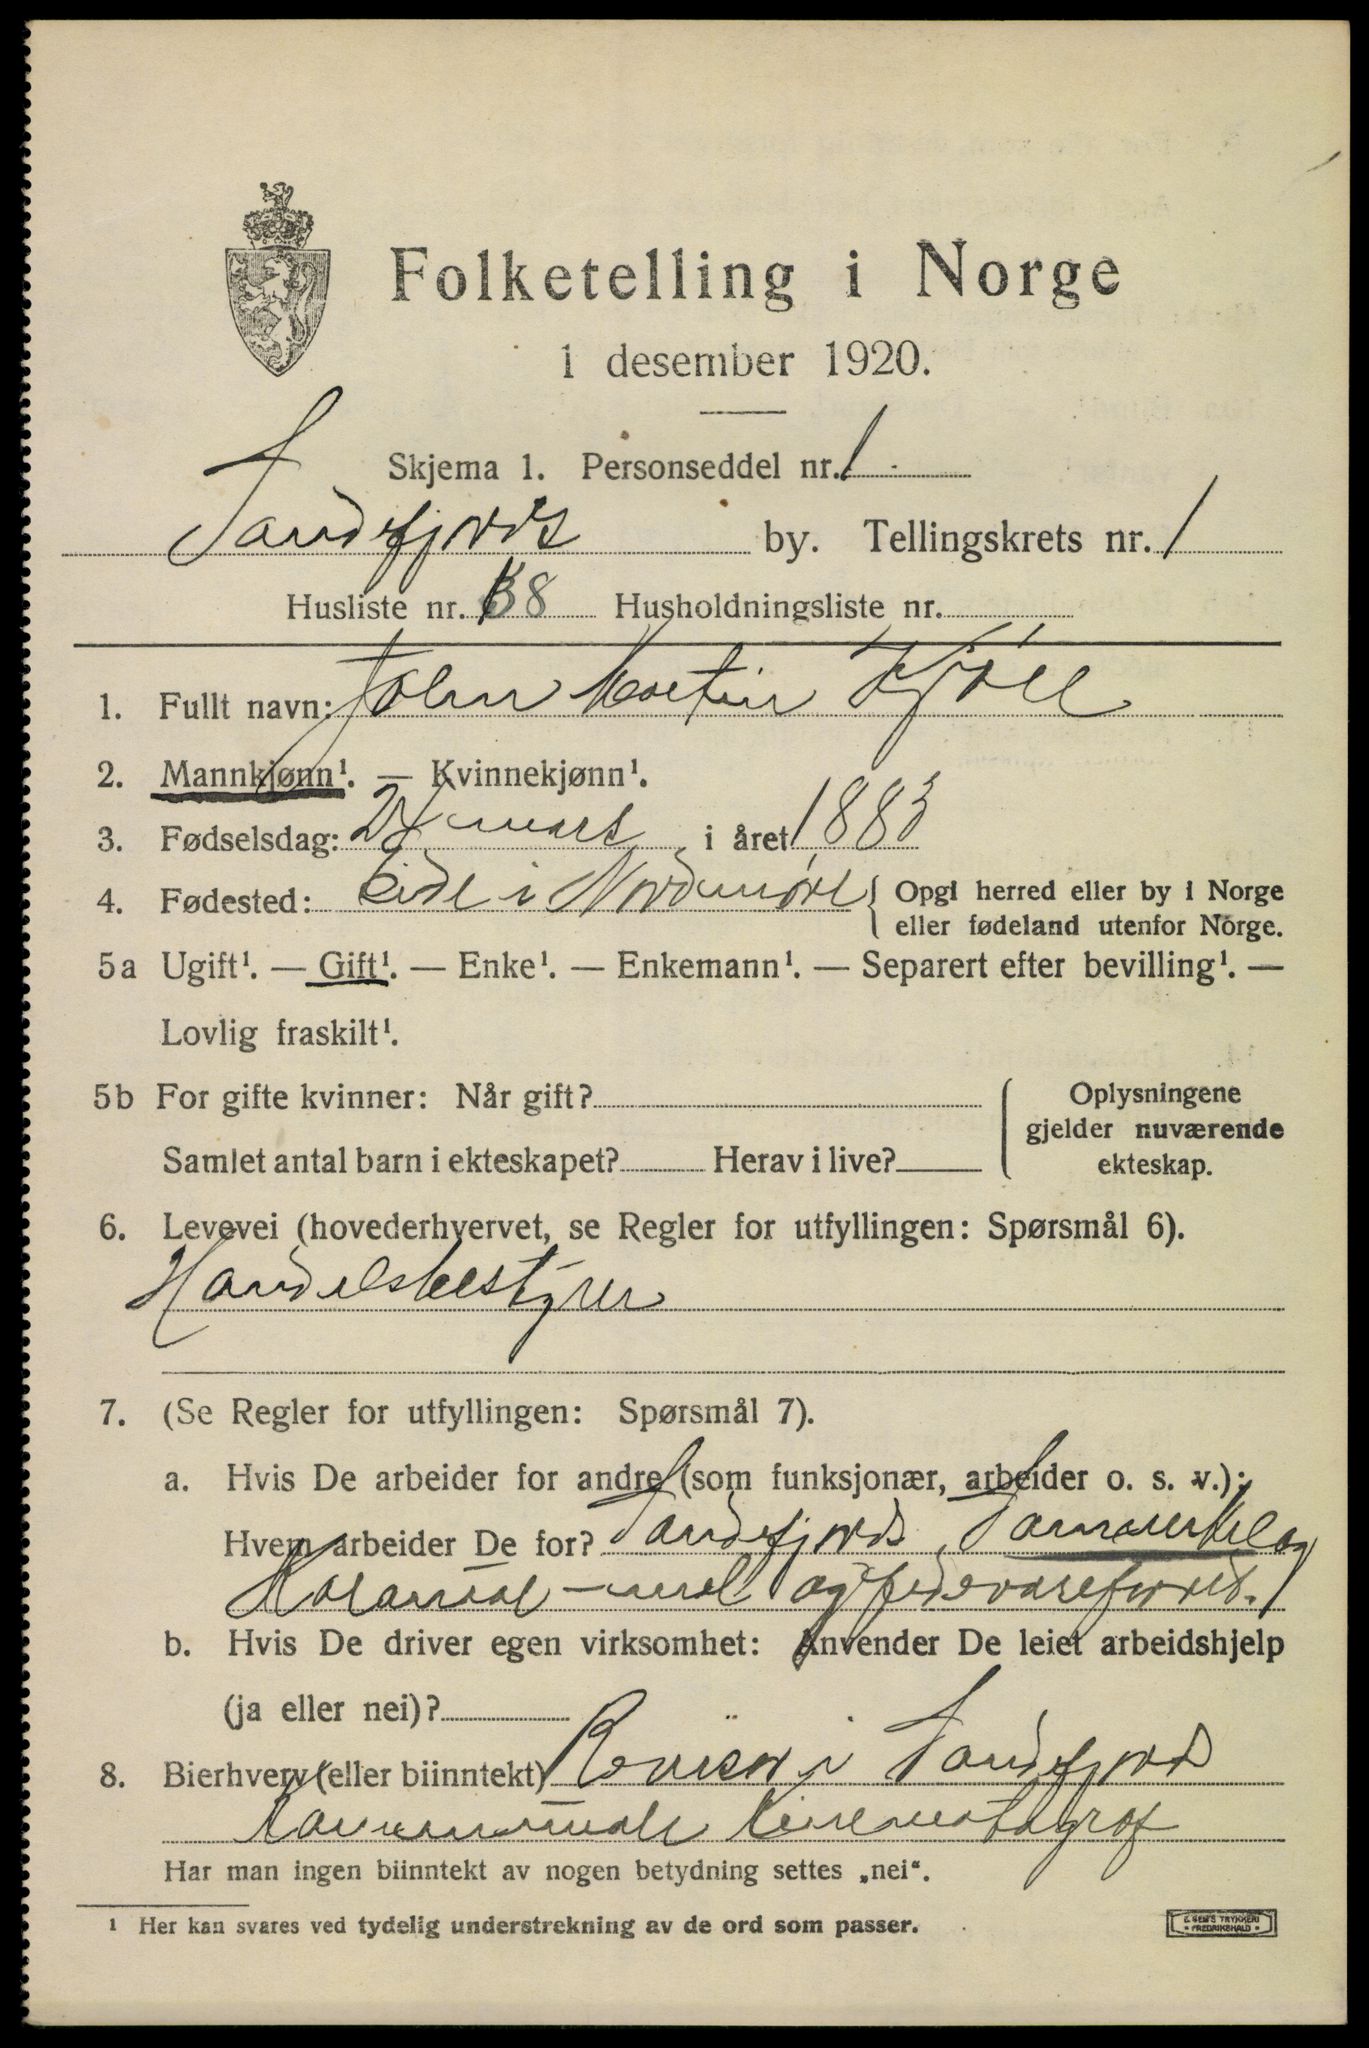 Folketelling i Norge
1 desember 1920.
Skjema 1. Personseddel nr. 1
Sandefjords by. Tellingskrets nr. 1
Husliste nr. 38 Husholdningsliste nr.
1. Fullt navn: John Martin Kjöll
2. Mannkjønn¹. — Kvinnekjønn¹.
3. Fødselsdag: 24 mars i året 1883
4. Fødested: Eide i Nordmøre { Opgi herred eller by i Norge
eller fødeland utenfor Norge.
5a Ugift¹. — Gift¹. — Enke¹. — Enkemann¹. — Separert efter bevilling¹. —
Lovlig fraskilt¹.
5b For gifte kvinner: Når gift?
Samlet antal barn i ekteskapet? Herav i live?
Oplysningene
gjelder nuværende
ekteskap.
6. Levevei (hovederhvervet, se Regler for utfyllingen: Spørsmål 6).
Handelsbestyrer
7. (Se Regler for utfyllingen: Spørsmål 7).
a. Hvis De arbeider for andre (som funksjonær, arbeider o. s. v.):
Hvem arbeider De for? Sandefjords
Kolonial-mel og fedevareforret.
b. Hvis De driver egen virksomhet: Anvender De leiet arbeidshjelp
(ja eller nei)?
8. Bierhverv (eller biinntekt) Revisor i Sandefjords
Kommunale Kinematograf
Har man ingen biinntekt av nogen betydning settes „nei“.
¹ Her kan svares ved tydelig understrekning av de ord som passer.
E. SEM'S TRYKKERI
FREDRIKSHALD